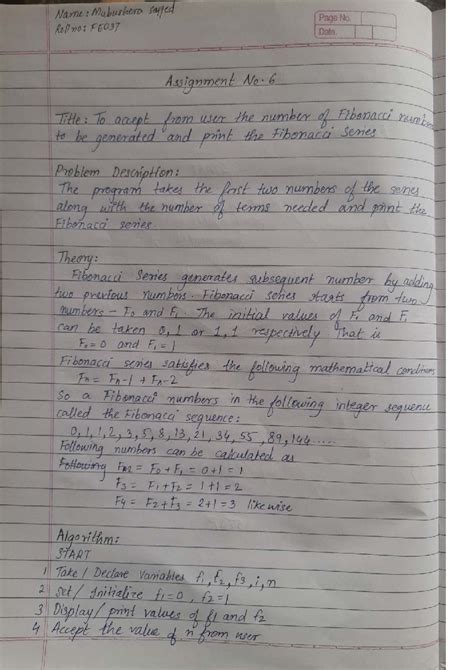 Name: Mubashera Sayed
Roll no: FE037
Page No.
Date.
Assignment No. 6
Title: To accept from user the number of Fibonacci numbers
to be generated and print the Fibonacci Series
Problem Description:
The program takes the first two numbers of the series
along with the number of terms needed and print the
Fibonacci series.
Theory:
Fibonacci Series generates subsequent number by adding
two previous numbers. Fibonacci series starts from two
numbers - F0 and F1. The initial values of F0 and F1
can be taken 0,1 or 1,1 respectively That is
F0 = 0 and F1 = 1
Fibonacci series satisfies the following mathematical conditions
Fn = Fn-1 + Fn-2
So a Fibonacci numbers in the following integer sequence
called the Fibonacci sequence:
0,1,1,2,3,5,8,13,21,34,55,89,144.....
Following numbers can be calculated as
Following F2 = F0 + F1 = 0+1 = 1
F3 = F1+F2 = 1+1 = 2
F4 = F2+F3 = 2+1 = 3 likewise
Algorithm:
START
1 Take / Declare variables f1, f2, f3, i, n
2 Set / Initialize f1=0, f2=1
3 Display / print values of f1 and f2
4 Accept the value of n from user